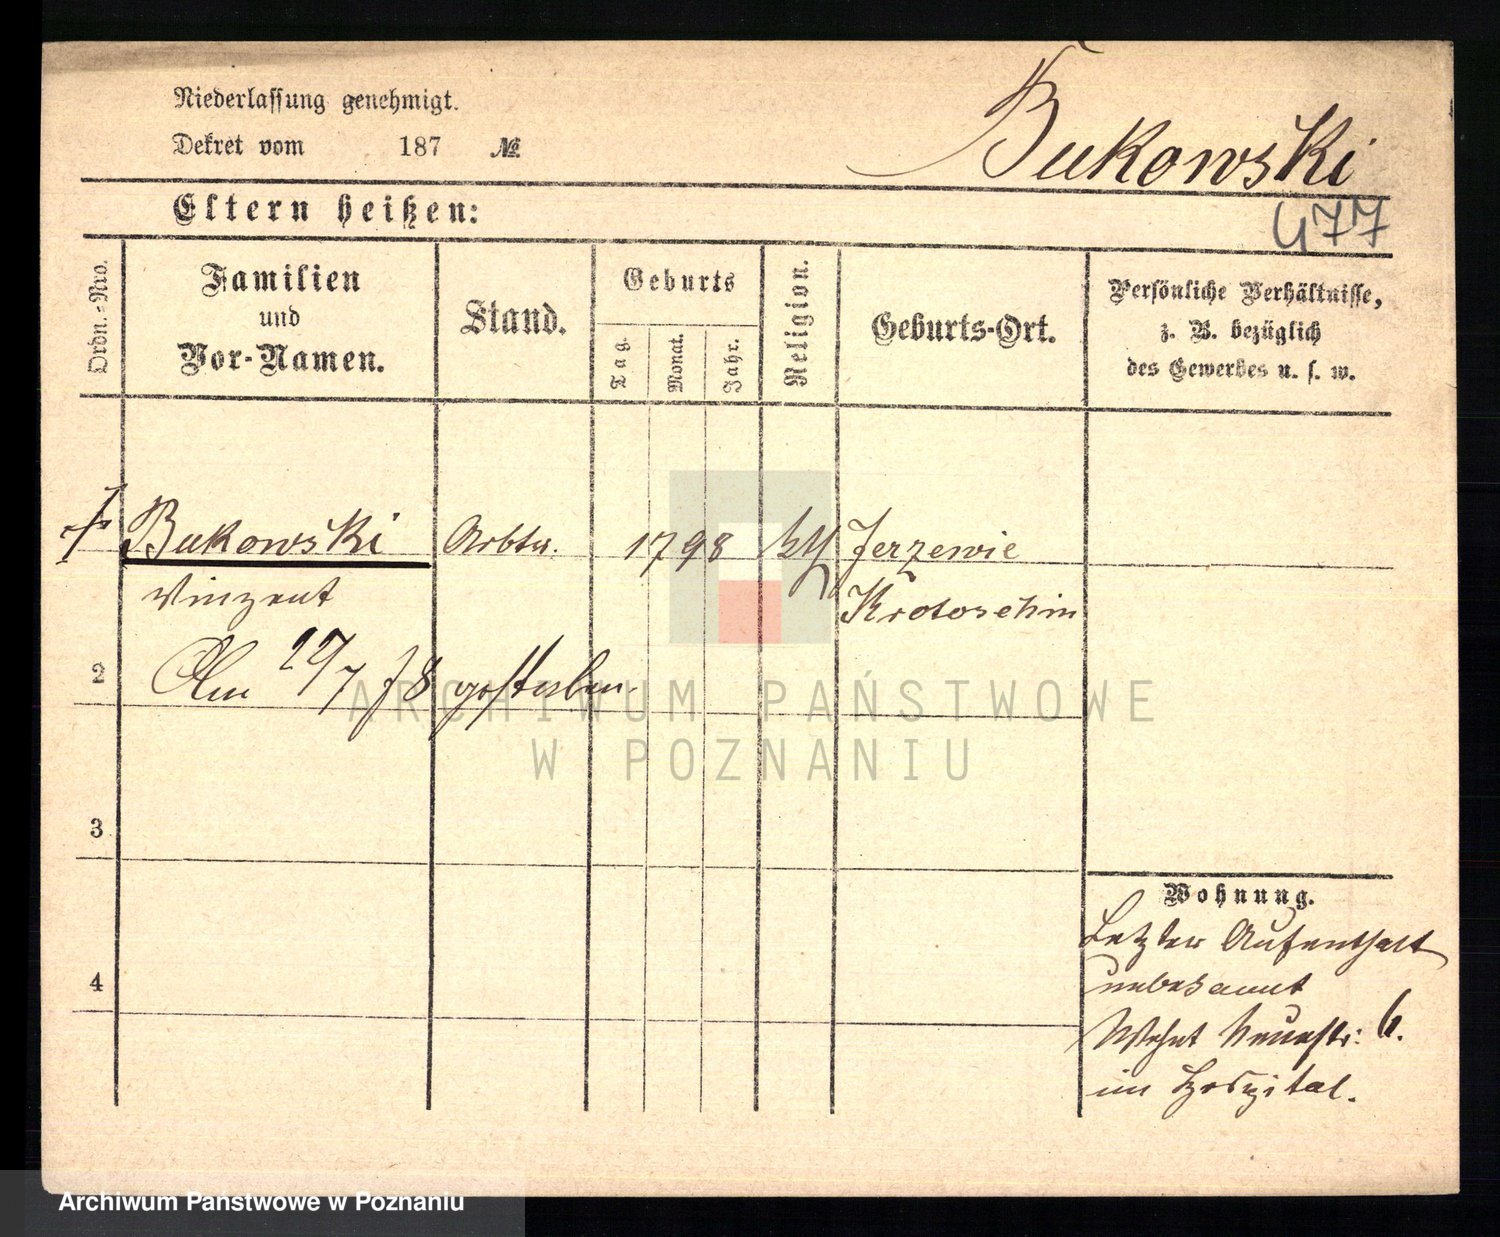 Niederlassung genehmigt.
Dekret vom 187 №
Bukowski
477
Eltern heißen:
Ordn.-Nro.
Familien
und
Vor-Namen.
Stand.
Geburts
Tag.
Monat.
Jahr.
Religion.
Geburts-Ort.
Persönliche Verhältnisse,
z. B. bezüglich
des Gewerbes u. s. w.
Bukowski Arbtr. 1798 kth Jerzewie
Vinzent Krotoschin
2 Am 29/7 78 gestorben.
3
4
Wohnung.
Letzter Aufenthalt
unbekannt
Wohnt Neuestr: 6.
im Hospital.
ARCHIWUM PAŃSTWOWE
W POZNANIU
Archiwum Państwowe w Poznaniu